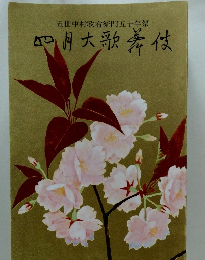 五世中村歌右衛門五十年祭
四月大歌舞伎